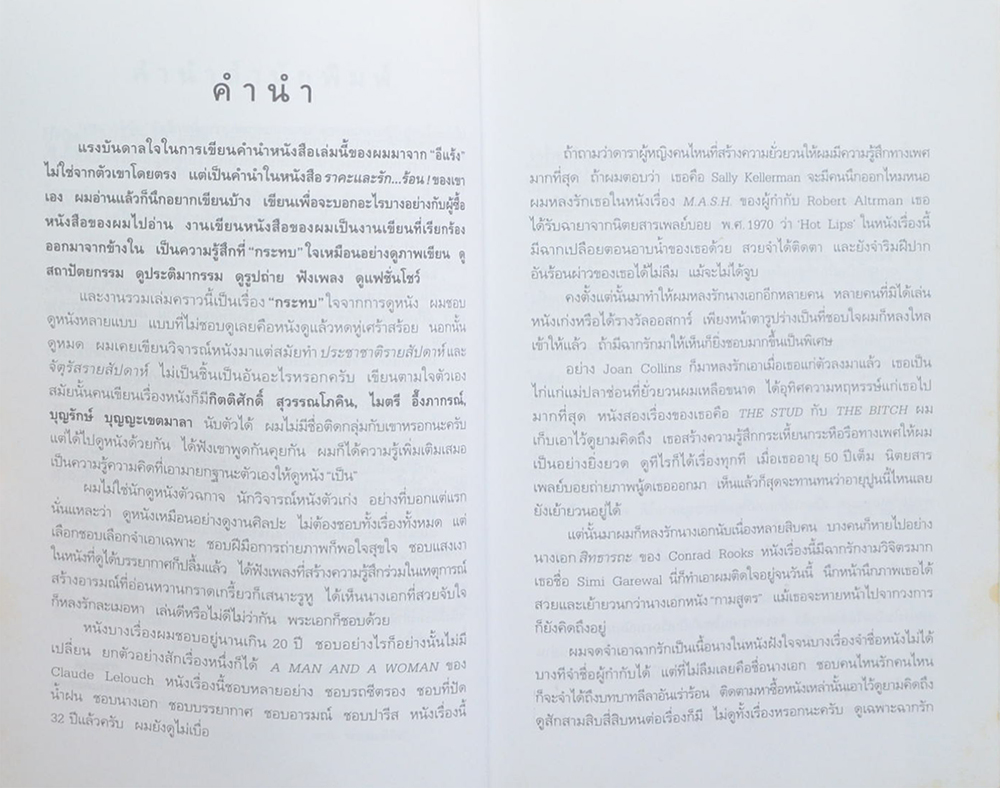 คำนำ
แรงบันดาลใจในการเขียนคำนำหนังสือเล่มนี้ของผมมาจาก "อีแร้ง"
ไม่ใช่จากตัวเขาโดยตรง แต่เป็นคำนำในหนังสือ ราคะและรัก...ร้อน! ของเขา
เอง ผมอ่านแล้วก็นึกอยากเขียนบ้าง เขียนเพื่อจะบอกอะไรบางอย่างกับผู้ซื้อ
หนังสือของผมไปอ่าน งานเขียนหนังสือของผมเป็นงานเขียนที่เรียกร้อง
ออกมาจากข้างใน เป็นความรู้สึกที่ "กระทบ" ใจเหมือนอย่างดูภาพเขียน ดู
สถาปัตยกรรม ดูประติมากรรม ดูรูปถ่าย ฟังเพลง ดูแฟชั่นโชว์
และงานรวมเล่มคราวนี้เป็นเรื่อง "กระทบ" ใจจากการดูหนัง ผมชอบ
ดูหนังหลายแบบ แบบที่ไม่ชอบดูเลยคือหนังดูแล้วหดหู่เศร้าสร้อย นอกนั้น
ดูหมด ผมเคยเขียนวิจารณ์หนังมาแต่สมัยทำ ประชาชาติรายสัปดาห์ และ
จัตุรัสรายสัปดาห์ ไม่เป็นชิ้นเป็นอันอะไรหรอกครับ เขียนตามใจตัวเอง
สมัยนั้นคนเขียนเรื่องหนังก็มีกิตติศักดิ์ สุวรรณโภคิน, ไมตรี อึ๊งภากรณ์,
บุญรักษ์ บุญญะเขตมาลา นับตัวได้ ผมไม่มีชื่อติดกลุ่มกับเขาหรอกนะครับ
แต่ได้ไปดูหนังด้วยกัน ได้ฟังเขาพูดกันคุยกัน ผมก็ได้ความรู้เพิ่มเติมเสมอ
เป็นความรู้ความคิดที่เอามายกฐานะตัวเองให้ดูหนัง "เป็น"
ผมไม่ใช่นักดูหนังตัวฉกาจ นักวิจารณ์หนังตัวเก่ง อย่างที่บอกแต่แรก
นั่นแหละว่า ดูหนังเหมือนอย่างดูงานศิลปะ ไม่ต้องชอบทั้งเรื่องทั้งหมด แต่
เลือกชอบเลือกจำเอาเฉพาะ ชอบฝีมือการถ่ายภาพก็พอใจสุขใจ ชอบแสงเงา
ในหนังที่ดูได้บรรยากาศก็ปลื้มแล้ว ได้ฟังเพลงที่สร้างความรู้สึกร่วมในเหตุการณ์
สร้างอารมณ์ที่อ่อนหวานกราดเกรี้ยวก็เสนาะรูหู ได้เห็นนางเอกที่สวยจับใจ
ก็หลงรักละเมอหา เล่นดีหรือไม่ดีไม่ว่ากัน พระเอกก็ชอบด้วย
หนังบางเรื่องผมชอบอยู่นานเกิน 20 ปี ชอบอย่างไรก็อย่างนั้นไม่มี
เปลี่ยน ยกตัวอย่างสักเรื่องหนึ่งก็ได้ A MAN AND A WOMAN ของ
Claude Lelouch หนังเรื่องนี้ชอบหลายอย่าง ชอบรถซีตรอง ชอบที่ปัด
น้ำฝน ชอบนางเอก ชอบบรรยากาศ ชอบอารมณ์ ชอบปารีส หนังเรื่องนี้
32 ปีแล้วครับ ผมยังดูไม่เบื่อ
ถ้าถามว่าดาราผู้หญิงคนไหนที่สร้างความยั่วยวนให้ผมมีความรู้สึกทางเพศ
มากที่สุด ถ้าผมตอบว่า เธอคือ Sally Kellerman จะมีคนนึกออกไหมหนอ
ผมหลงรักเธอในหนังเรื่อง M.A.S.H. ของผู้กำกับ Robert Altrman เธอ
ได้รับฉายาจากนิตยสารเพลย์บอย พ.ศ. 1970 ว่า 'Hot Lips' ในหนังเรื่องนี้
มีฉากเปลือยตอนอาบน้ำของเธอด้วย สวยจำได้ติดตา และยังจำริมฝีปาก
อันร้อนผ่าวของเธอได้ไม่ลืม แม้จะไม่ได้จูบ
คงตั้งแต่นั้นมาทำให้ผมหลงรักนางเอกอีกหลายคน หลายคนที่มิได้เล่น
หนังเก่งหรือได้รางวัลออสการ์ เพียงหน้าตารูปร่างเป็นที่ชอบใจผมก็หลงใหล
เข้าให้แล้ว ถ้ามีฉากรักมาให้เห็นก็ยิ่งชอบมากขึ้นเป็นพิเศษ
อย่าง Joan Collins ก็มาหลงรักเอาเมื่อเธอแก่ตัวลงมาแล้ว เธอเป็น
ไก่แก่แม่ปลาช่อนที่ยั่วยวนผมเหลือขนาด ได้อุทิศความหฤหรรษ์แก่เธอไป
มากที่สุด หนังสองเรื่องของเธอคือ THE STUD กับ THE BITCH ผม
เก็บเอาไว้ดูยามคิดถึง เธอสร้างความรู้สึกกระเหี้ยนกระหือรือทางเพศให้ผม
เป็นอย่างยิ่งยวด ดูทีไรก็ได้เรื่องทุกที เมื่อเธออายุ 50 ปีเต็ม นิตยสาร
เพลย์บอยถ่ายภาพนู้ดเธอออกมา เห็นแล้วก็สุดจะทานทนว่าอายุปูนนี้ไหนเลย
ยังเย้ายวนอยู่ได้
แต่นั้นมาผมก็หลงรักนางเอกนับเนื่องหลายสิบคน บางคนก็หายไปอย่าง
นางเอก สิทธารถะ ของ Conrad Rooks หนังเรื่องนี้มีฉากรักงามวิจิตรมาก
เธอชื่อ Simi Garewal นี่ก็ทำเอาผมติดใจอยู่จนวันนี้ นึกหน้านึกภาพเธอได้
สวยและเย้ายวนกว่านางเอกหนัง "กามสูตร" แม้เธอจะหายหน้าไปจากวงการ
ก็ยังคิดถึงอยู่
ผมจดจำเอาฉากรักเป็นเนื้อนางในหนังฝังใจจนบางเรื่องจำชื่อหนังไม่ได้
บางทีจำชื่อผู้กำกับได้ แต่ที่ไม่ลืมเลยคือชื่อนางเอก ชอบคนไหนรักคนไหน
ก็จะจำได้ถึงบทบาทลีลาอันเร่าร้อน ติดตามหาซื้อหนังเหล่านั้นเอาไว้ดูยามคิดถึง
ดูสักสามสิบสี่สิบหนต่อเรื่องก็มี ไม่ดูทั้งเรื่องหรอกนะครับ ดูเฉพาะฉากรัก